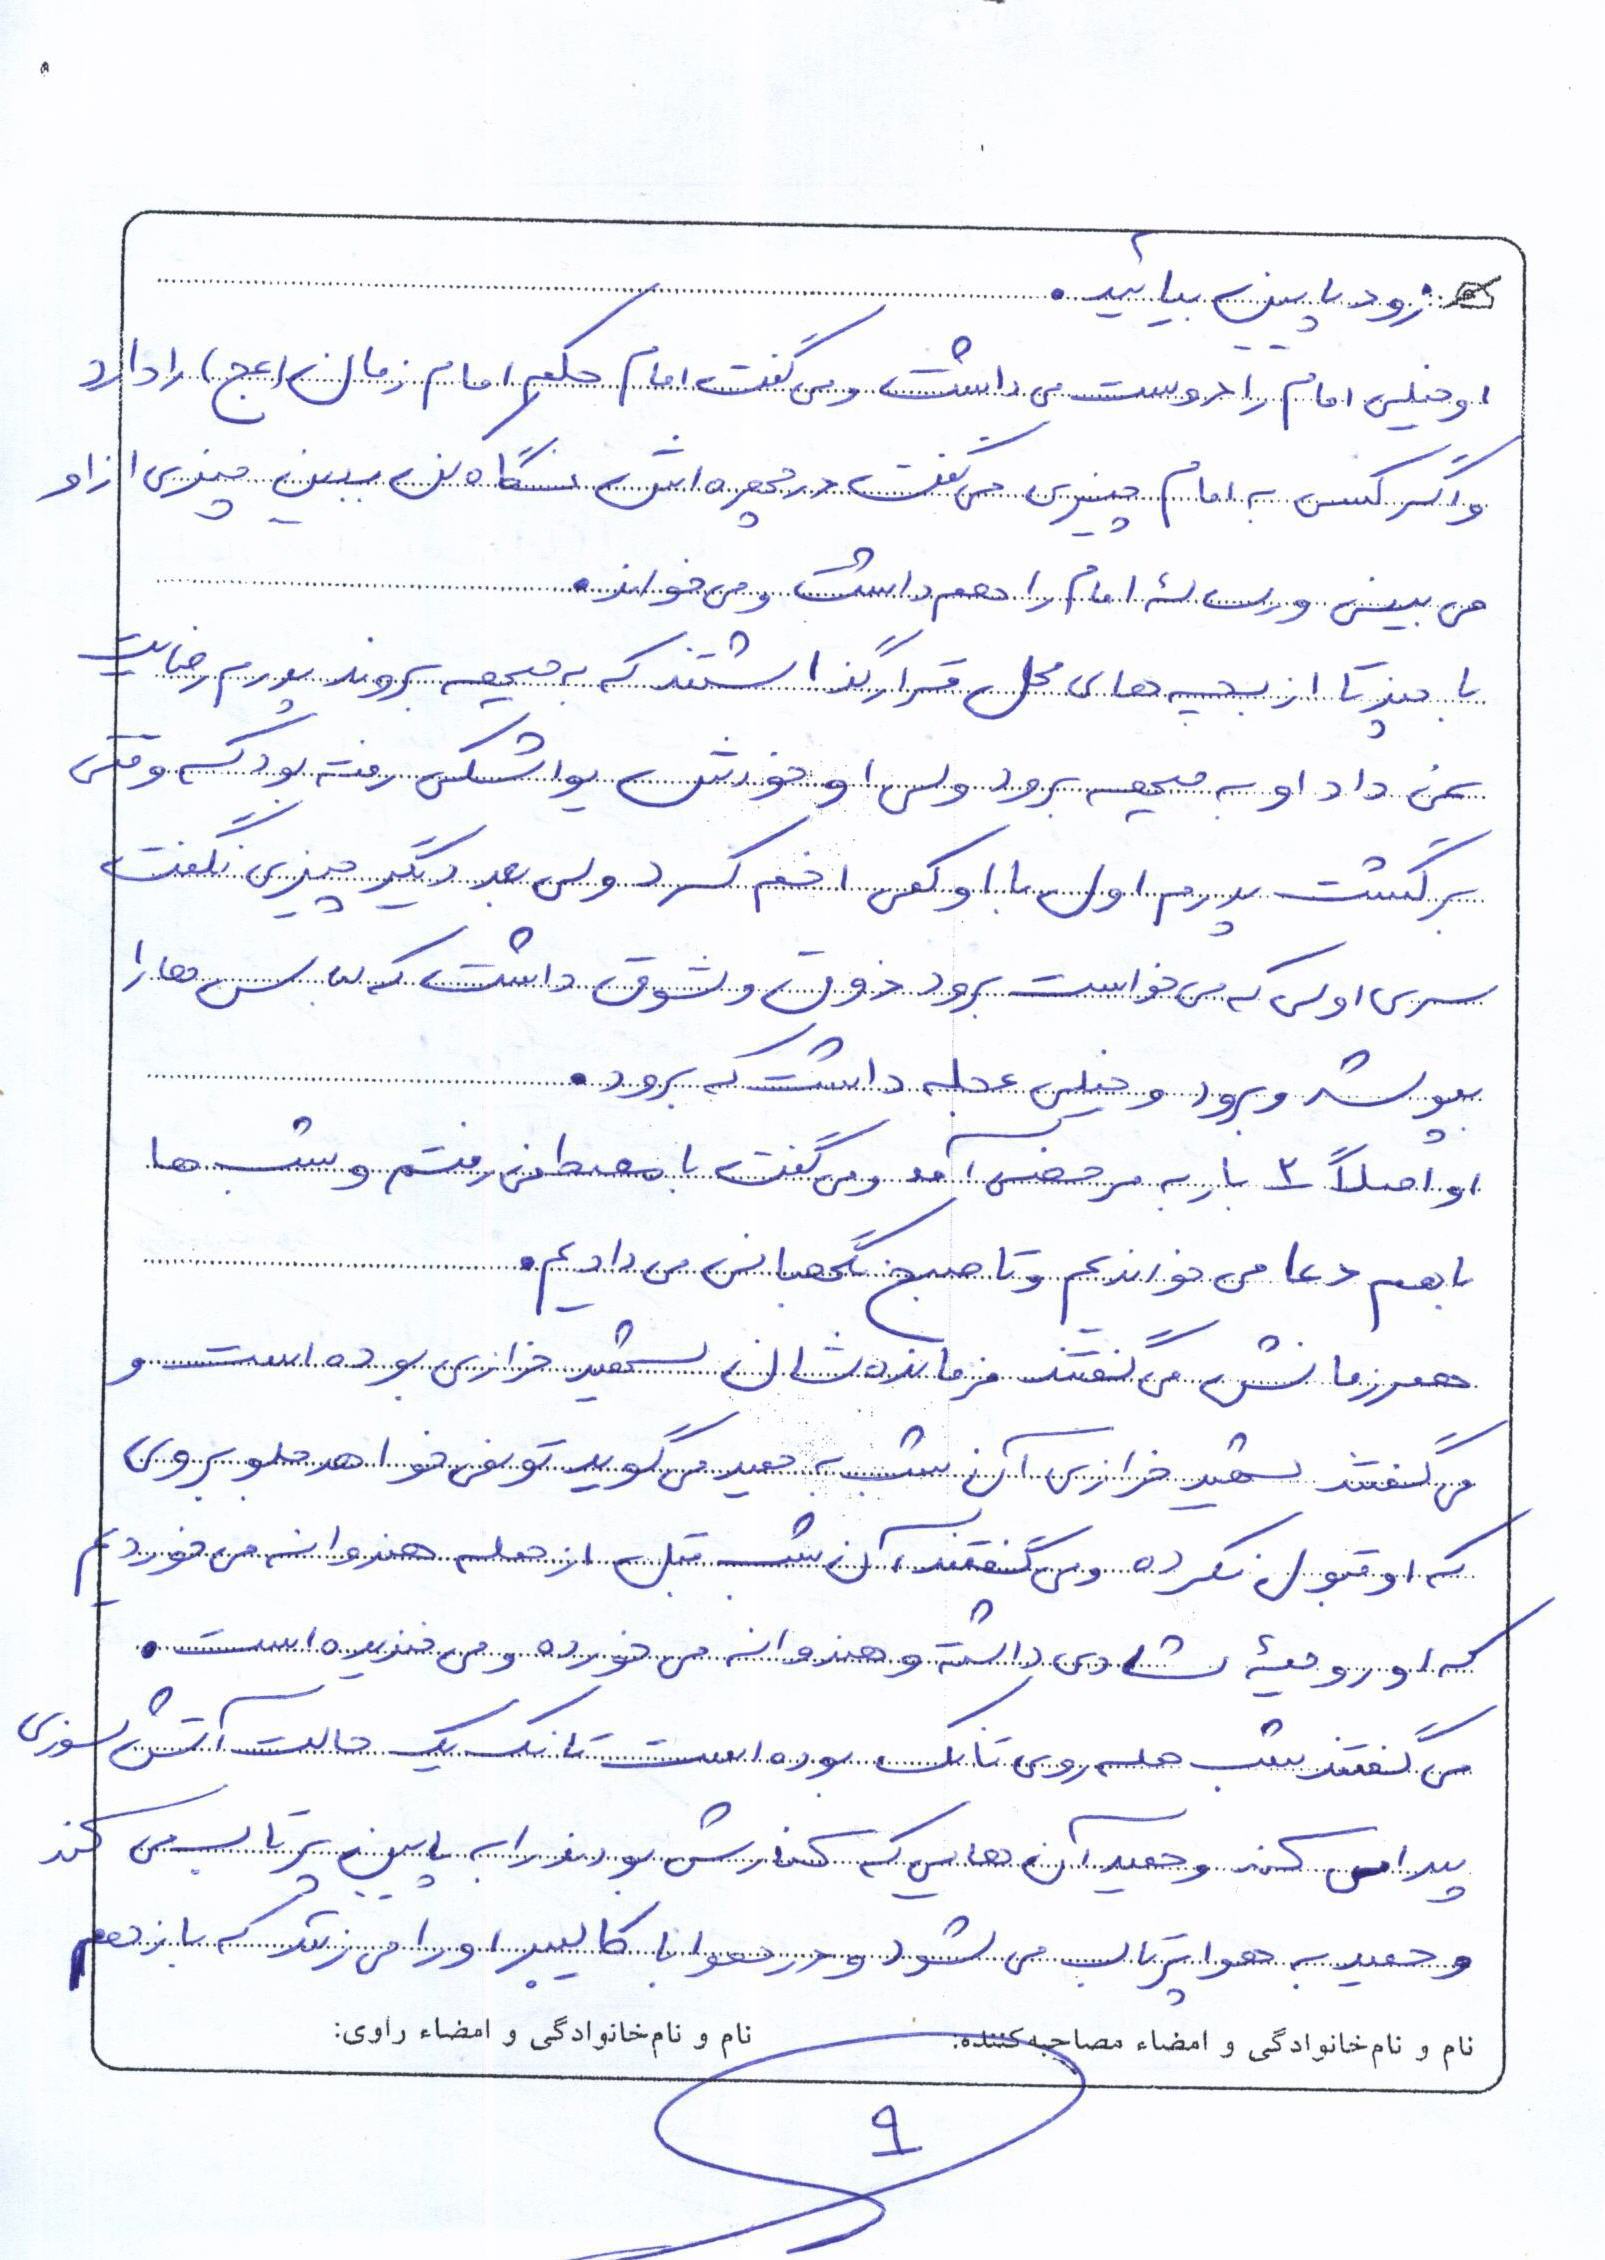 زود پایین بیائید.
او خیلی امام را دوست می داشت و می گفت امام حکم امام زمان (عج) را دارد
و اگر کسی به امام چیزی می گفت در چهره اش نگاه کن ببین چیزی از او
می بینی و رسالهٔ امام را هم داشت و می خواند.
با چند تا از بچه های محل قرار گذاشتند که به جبهه بروند پدرم رضایت
نمی داد او به جبهه برود ولی او خودش یواشکی رفته بود که وقتی
برگشت پدرم اول با او کمی اخم کرد ولی بعد دیگر چیزی نگفت
سری اولی که می خواست برود ذوق و شوق داشت که لباس ها را
بپوشد و برود و خیلی عجله داشت که برود.
او اصلاً ۲ بار به مرخصی آمد و می گفت با مصطفی رفتم و شب ها
با هم دعا می خوندیم و تا صبح نگهبانی می دادیم.
همرزمانش می گفتند فرمانده شان شهید خرازی بوده است و
می گفتند شهید خرازی آن شب به حمید می گوید تو نمی خواهد جلو بروی
که او قبول نکرده و می گفتند آن شب قبل از حمله هندوانه می خوردیم
که او روحیهٔ شادی داشته و هندوانه می خورده و می خندیده است.
می گفتند شب حمله روی تانک بوده است تانک یک حالت آتش سوزی
پیدا می کند و حمید آن هایی که کنارش بودند را به پایین پرتاب می کند
و حمید به هوا پرتاب می شود و در هوا با کالیبر او را می زنند که باز هم
نام و نام‌خانوادگی و امضاء مصاحبه‌کننده: نام و نام‌خانوادگی و امضاء راوی:
۹